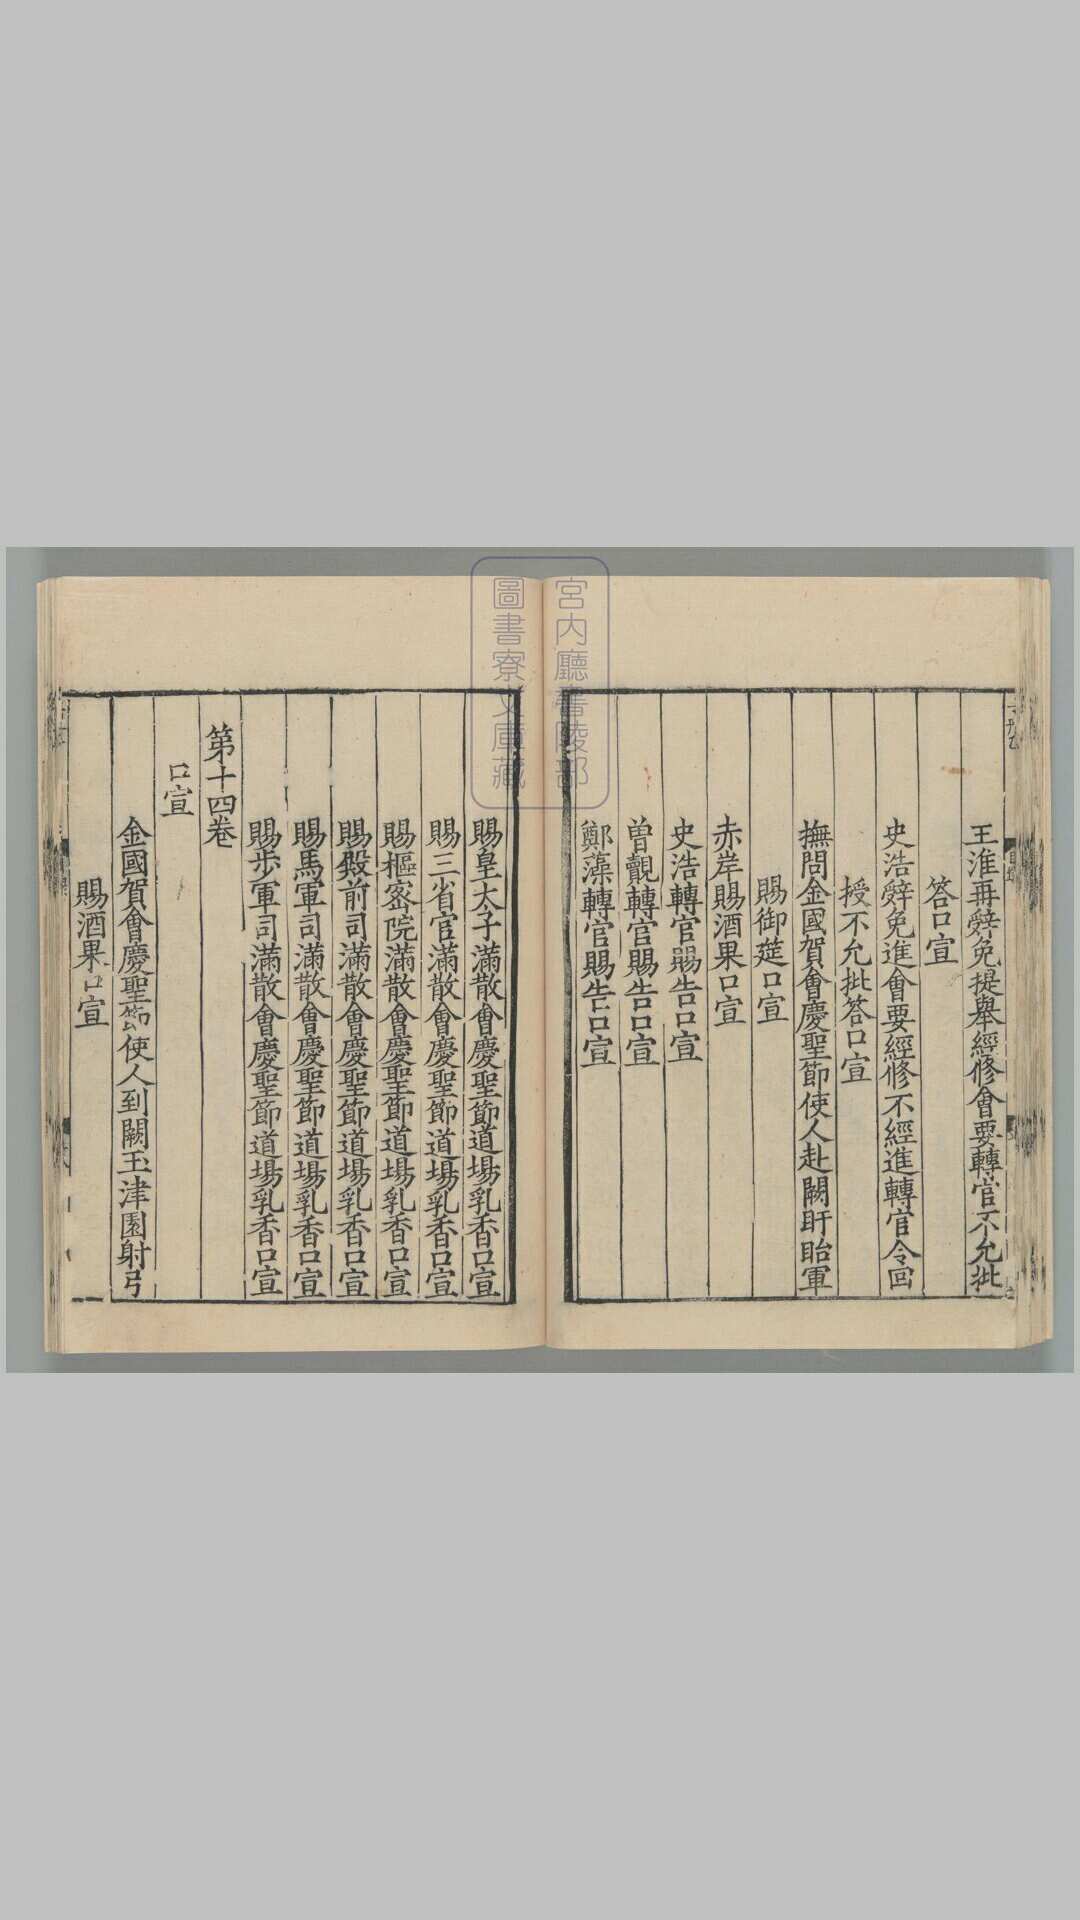 王淮再辭免提舉經修會要轉官不允批
答口宣
史浩辭免進會要經修不經進轉官令回
授不允批答口宣
撫問金國賀會慶聖節使人赴闕盱眙軍
賜御筵口宣
赤岸賜酒果口宣
史浩轉官賜告口宣
曾覿轉官賜告口宣
鄭藻轉官賜告口宣
賜皇太子滿散會慶聖節道場乳香口宣
賜三省官滿散會慶聖節道場乳香口宣
賜樞密院滿散會慶聖節道場乳香口宣
賜殿前司滿散會慶聖節道場乳香口宣
賜馬軍司滿散會慶聖節道場乳香口宣
賜步軍司滿散會慶聖節道場乳香口宣
第十四卷
口宣
金國賀會慶聖節使人到闕玉津園射弓
賜酒果口宣
宮內廳書陵部
圖書寮文庫藏